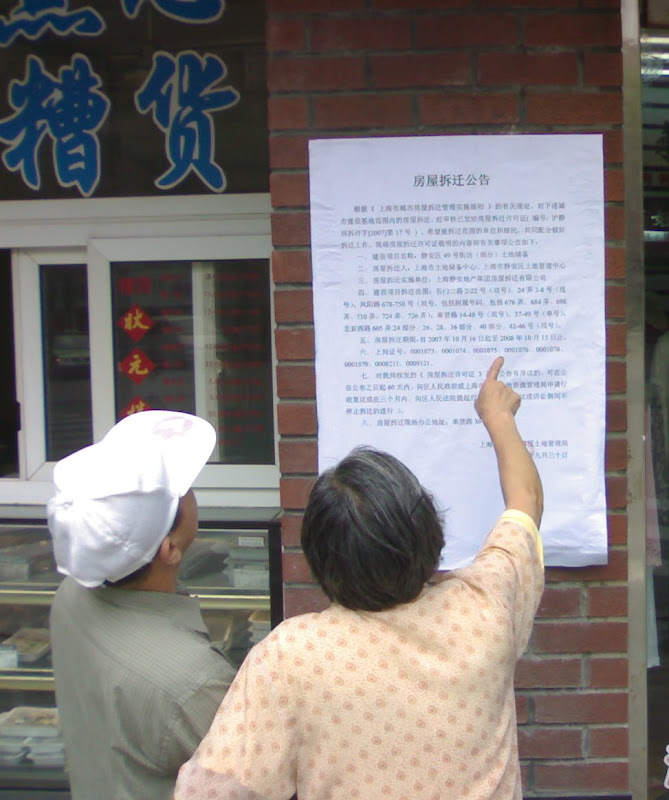 糟货
状
元
房屋拆迁公告
根据《上海市城市房屋拆迁管理实施细则》的有关规定，对下述城
市建设基地范围内的房屋拆迁，经审核已发给房屋拆迁许可证(编号:沪静
房拆许字[2007]第17号)。希望被拆迁范围的单位和居民，共同配合做好
拆迁工作。现将房屋拆迁许可证载明的内容和有关事项公告如下：
一、建设项目名称：静安区49号街坊（部分）土地储备
二、房屋拆迁人：上海市土地储备中心、上海市静安区土地管理中心
三、房屋拆迁实施单位：上海静安地产集团房屋拆迁有限公司
四、建设项目拆迁范围：石门二路2-22号（双号），24弄3-8号（连
号），凤阳路678-750号（双号，包括附属号码，包括676弄、684弄、698
弄、710弄、724弄、726弄），奉贤路14-48号（双号）、37-49号（单号），
北京西路605弄24部分、26、28、36部分、40部分、42-46号（双号）。
五、房屋拆迁期限：自2007年10月16日起至2008年10月15日止。
六、上岗证号：0001073、0001074、0001075、0001076、0001078、
0001079、0008211、0009121。
七、对我局核发的《房屋拆迁许可证》
公告有异议的，可在公
告公布之日起60天内，向区人民政府或上海市
资源管理局申请行
政复议或在三个月内，向区人民法院提起行
议或诉讼期间不
停止拆迁的进行）。
八、房屋拆迁现场办公地址：奉贤路36
上海
区土地管理局
九月三十日